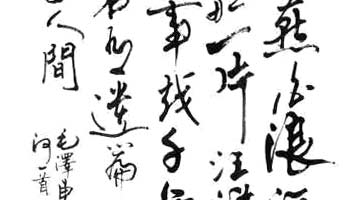 燕白浪滔
船一片汪洋
事越千年
石有遺篇
人間
毛澤東
词一首